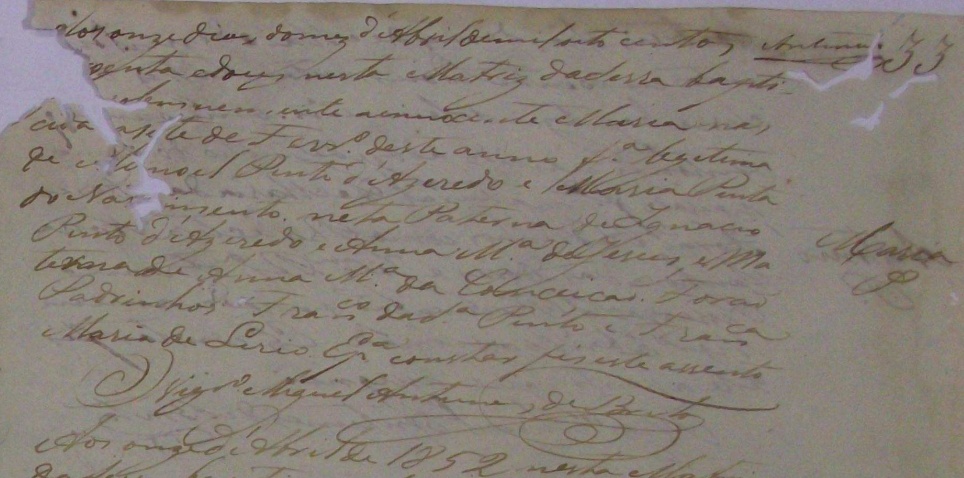 Aos onze dias do mez d'Abril de mil oito centos Antunes 33
coenta e dous, nesta Matriz da Serra bapti-
solemnemente a innocente Maria nas
cida a sete de Fevr.º deste anno f.ª legitima
de Manoel Pinto d'Azeredo e Maria Pinta
do Nascimento. neta Paterna de Ignacio
Pinto d'Azeredo e Anna M.ª de Jesus, e Ma
terna de Anna M.ª da Conceicaõ. Foraõ
Padrinhos Fran.co da Pinto e Fran.ca
Maria de E p.ª constar fis este assento
Maria
Vigr.º Miguel Antunes de Brito
Aos onze d'Abril de 1852 nesta Matri